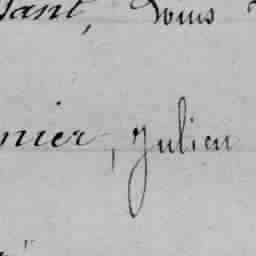 sant, vous
nier, Julien